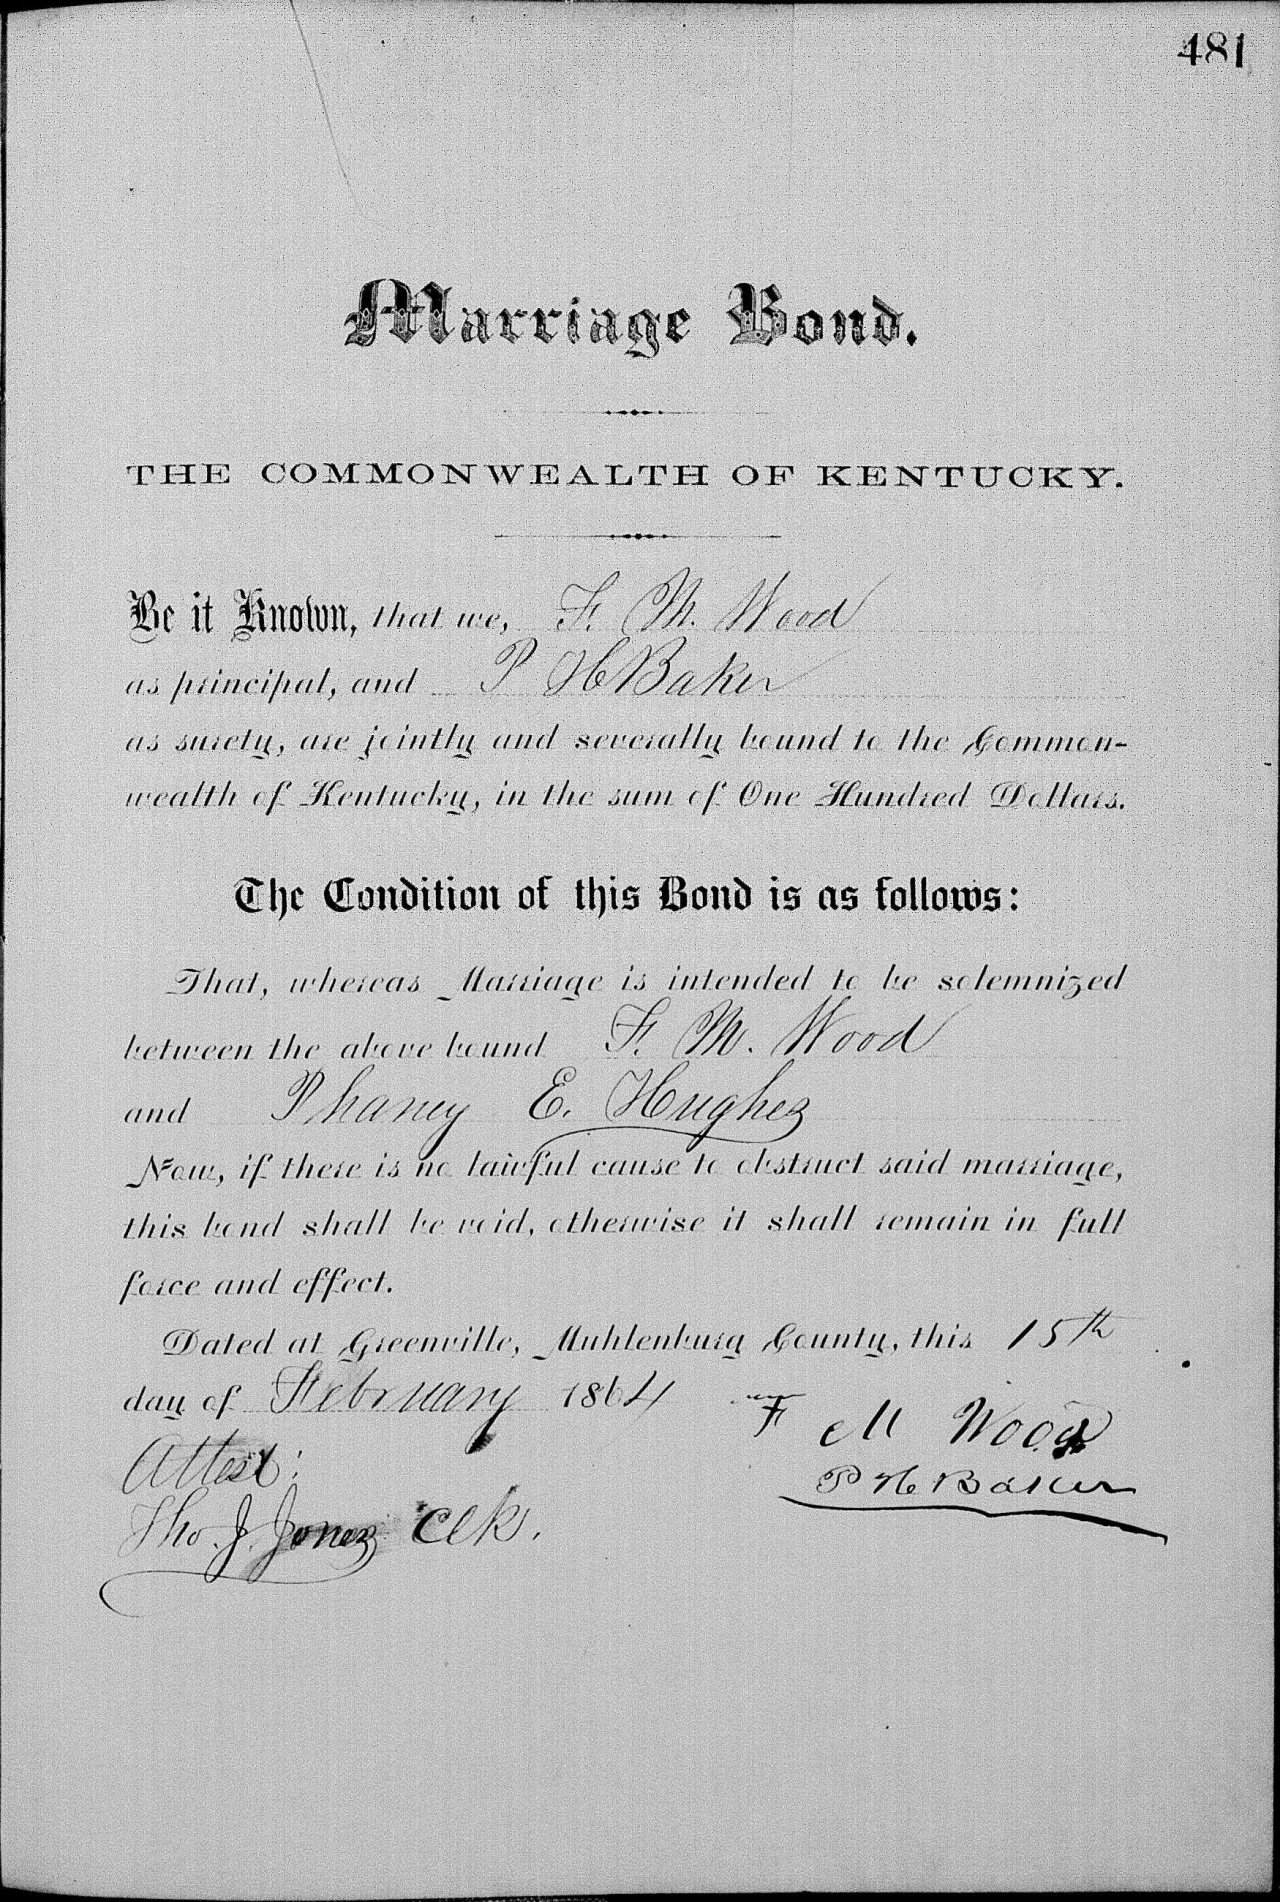 481
Marriage Bond.
THE COMMONWEALTH OF KENTUCKY.
Be it Known, that we, F. M. Wood
as principal, and P H Baker
as surety, are jointly and severally bound to the Common-
wealth of Kentucky, in the sum of One Hundred Dollars.
The Condition of this Bond is as follows:
That, whereas Marriage is intended to be solemnized
between the above bound F. M. Wood
and Phaney E. Hughes
Now, if there is no lawful cause to obstruct said marriage,
this bond shall be void, otherwise it shall remain in full
force and effect.
Dated at Greenville, Muhlenburg County, this 15th
day of February 1864
F M Wood
Attest:
P H Baker
Tho. J. Jones Clk.